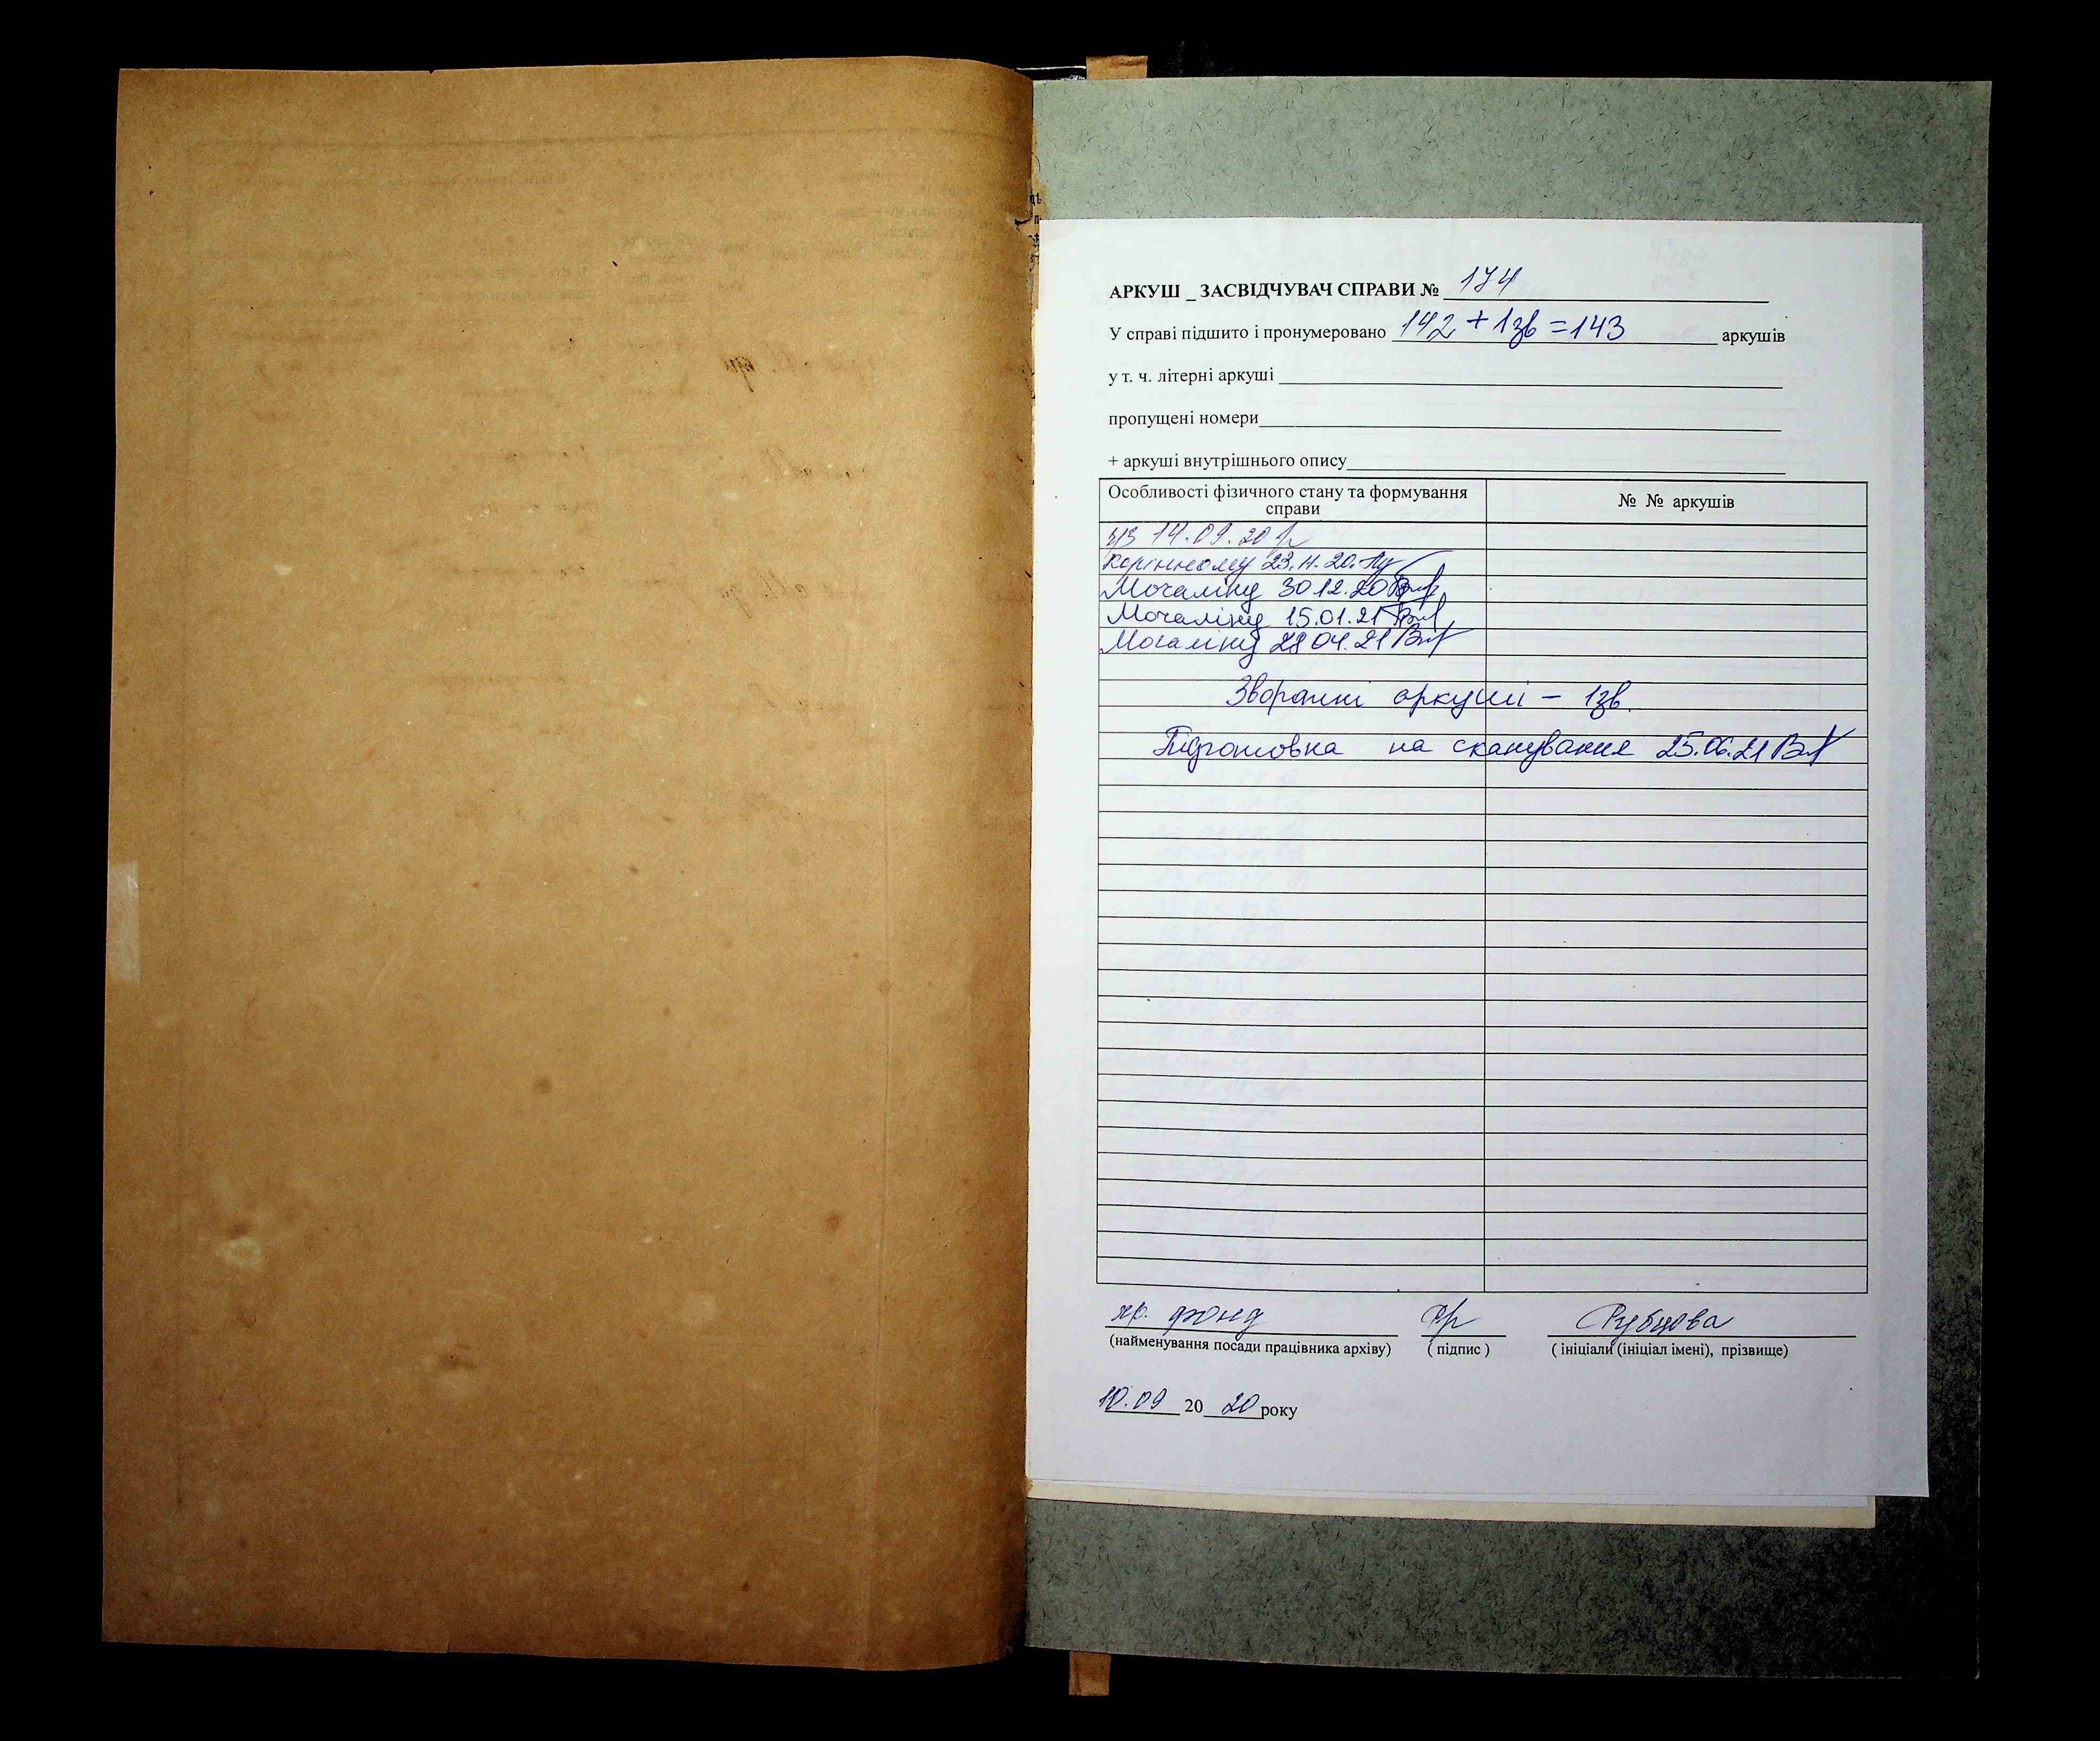 АРКУШ _ ЗАСВІДЧУВАЧ СПРАВИ № 174
У справі підшито і пронумеровано 142 + 1зв = 143 аркушів
у т. ч. літерні аркуші
пропущені номери
+ аркуші внутрішнього опису
Особливості фізичного стану та формування справи
№ № аркушів
14.09.20 р
Корінному 23.11.20.
Мочаліну 30.12.20
Мочаліну 15.01.21
Мочаліну 28.04.21
Зворотні аркуші – 1зв.
Підготовка на сканування 25.06.21
хр. фонд
Рубцова
(найменування посади працівника архіву) ( підпис ) ( ініціали (ініціал імені), прізвище)
10.09 20 20 року